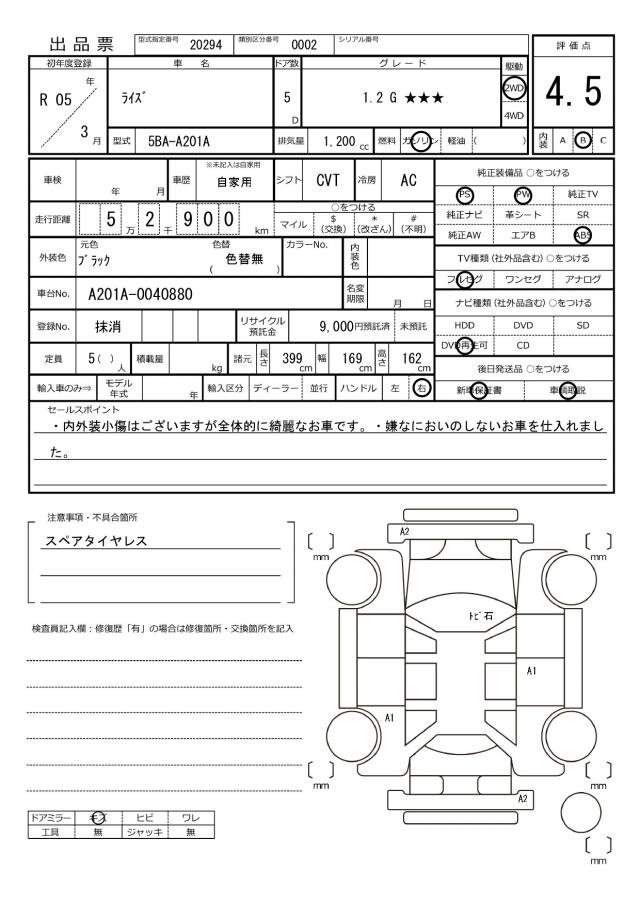 出品票 型式指定番号 20294 類別区分番号 0002 シリアル番号
評価点
4.5
内装 A B C
初年度登録 車名 ドア数 グレード 駆動
R 05 年 3 月 ﾗｲｽﾞ 5 D 1.2 G ★★★ 2WD
4WD
型式 5BA-A201A 排気量 1.200 cc 燃料 ガソリン 軽油 ( )
車検 年 月 車歴 ※未記入は自家用 自家用 シフト CVT 冷房 AC
走行距離 5 万 2 千 9 0 0 km
○をつける
マイル $ (交換) * (改ざん) # (不明)
外装色 元色 ﾌﾞﾗｯｸ 色替 ( 色替無 ) カラーNo. 内装色
車台No. A201A-0040880 名変期限 月 日
登録No. 抹消 リサイクル預託金 9,000円預託済 未預託
定員 5( ) 人 積載量 kg 諸元 長さ 399 cm 幅 169 cm 高さ 162 cm
輸入車のみ⇒ モデル年式 年 輸入区分 ディーラー 並行 ハンドル 左 右
純正装備品 ○をつける
PS PW 純正TV
純正ナビ 革シート SR
純正AW エアB ABS
TV種類 (社外品含む) ○をつける
フルセグ ワンセグ アナログ
ナビ種類 (社外品含む) ○をつける
HDD DVD SD
DVD再生可 CD
後日発送品 ○をつける
新車保証書 車輌取説
セールスポイント
・内外装小傷はございますが全体的に綺麗なお車です。・嫌なにおいのしないお車を仕入れまし
た。
注意事項・不具合箇所
スペアタイヤレス
検査員記入欄：修復歴「有」の場合は修復箇所・交換箇所を記入
ドアミラー キズ ヒビ ワレ
工具 無 ジャッキ 無
A2
mm
mm
ﾄﾋﾞ石
A1
A1
mm
mm
A2
mm